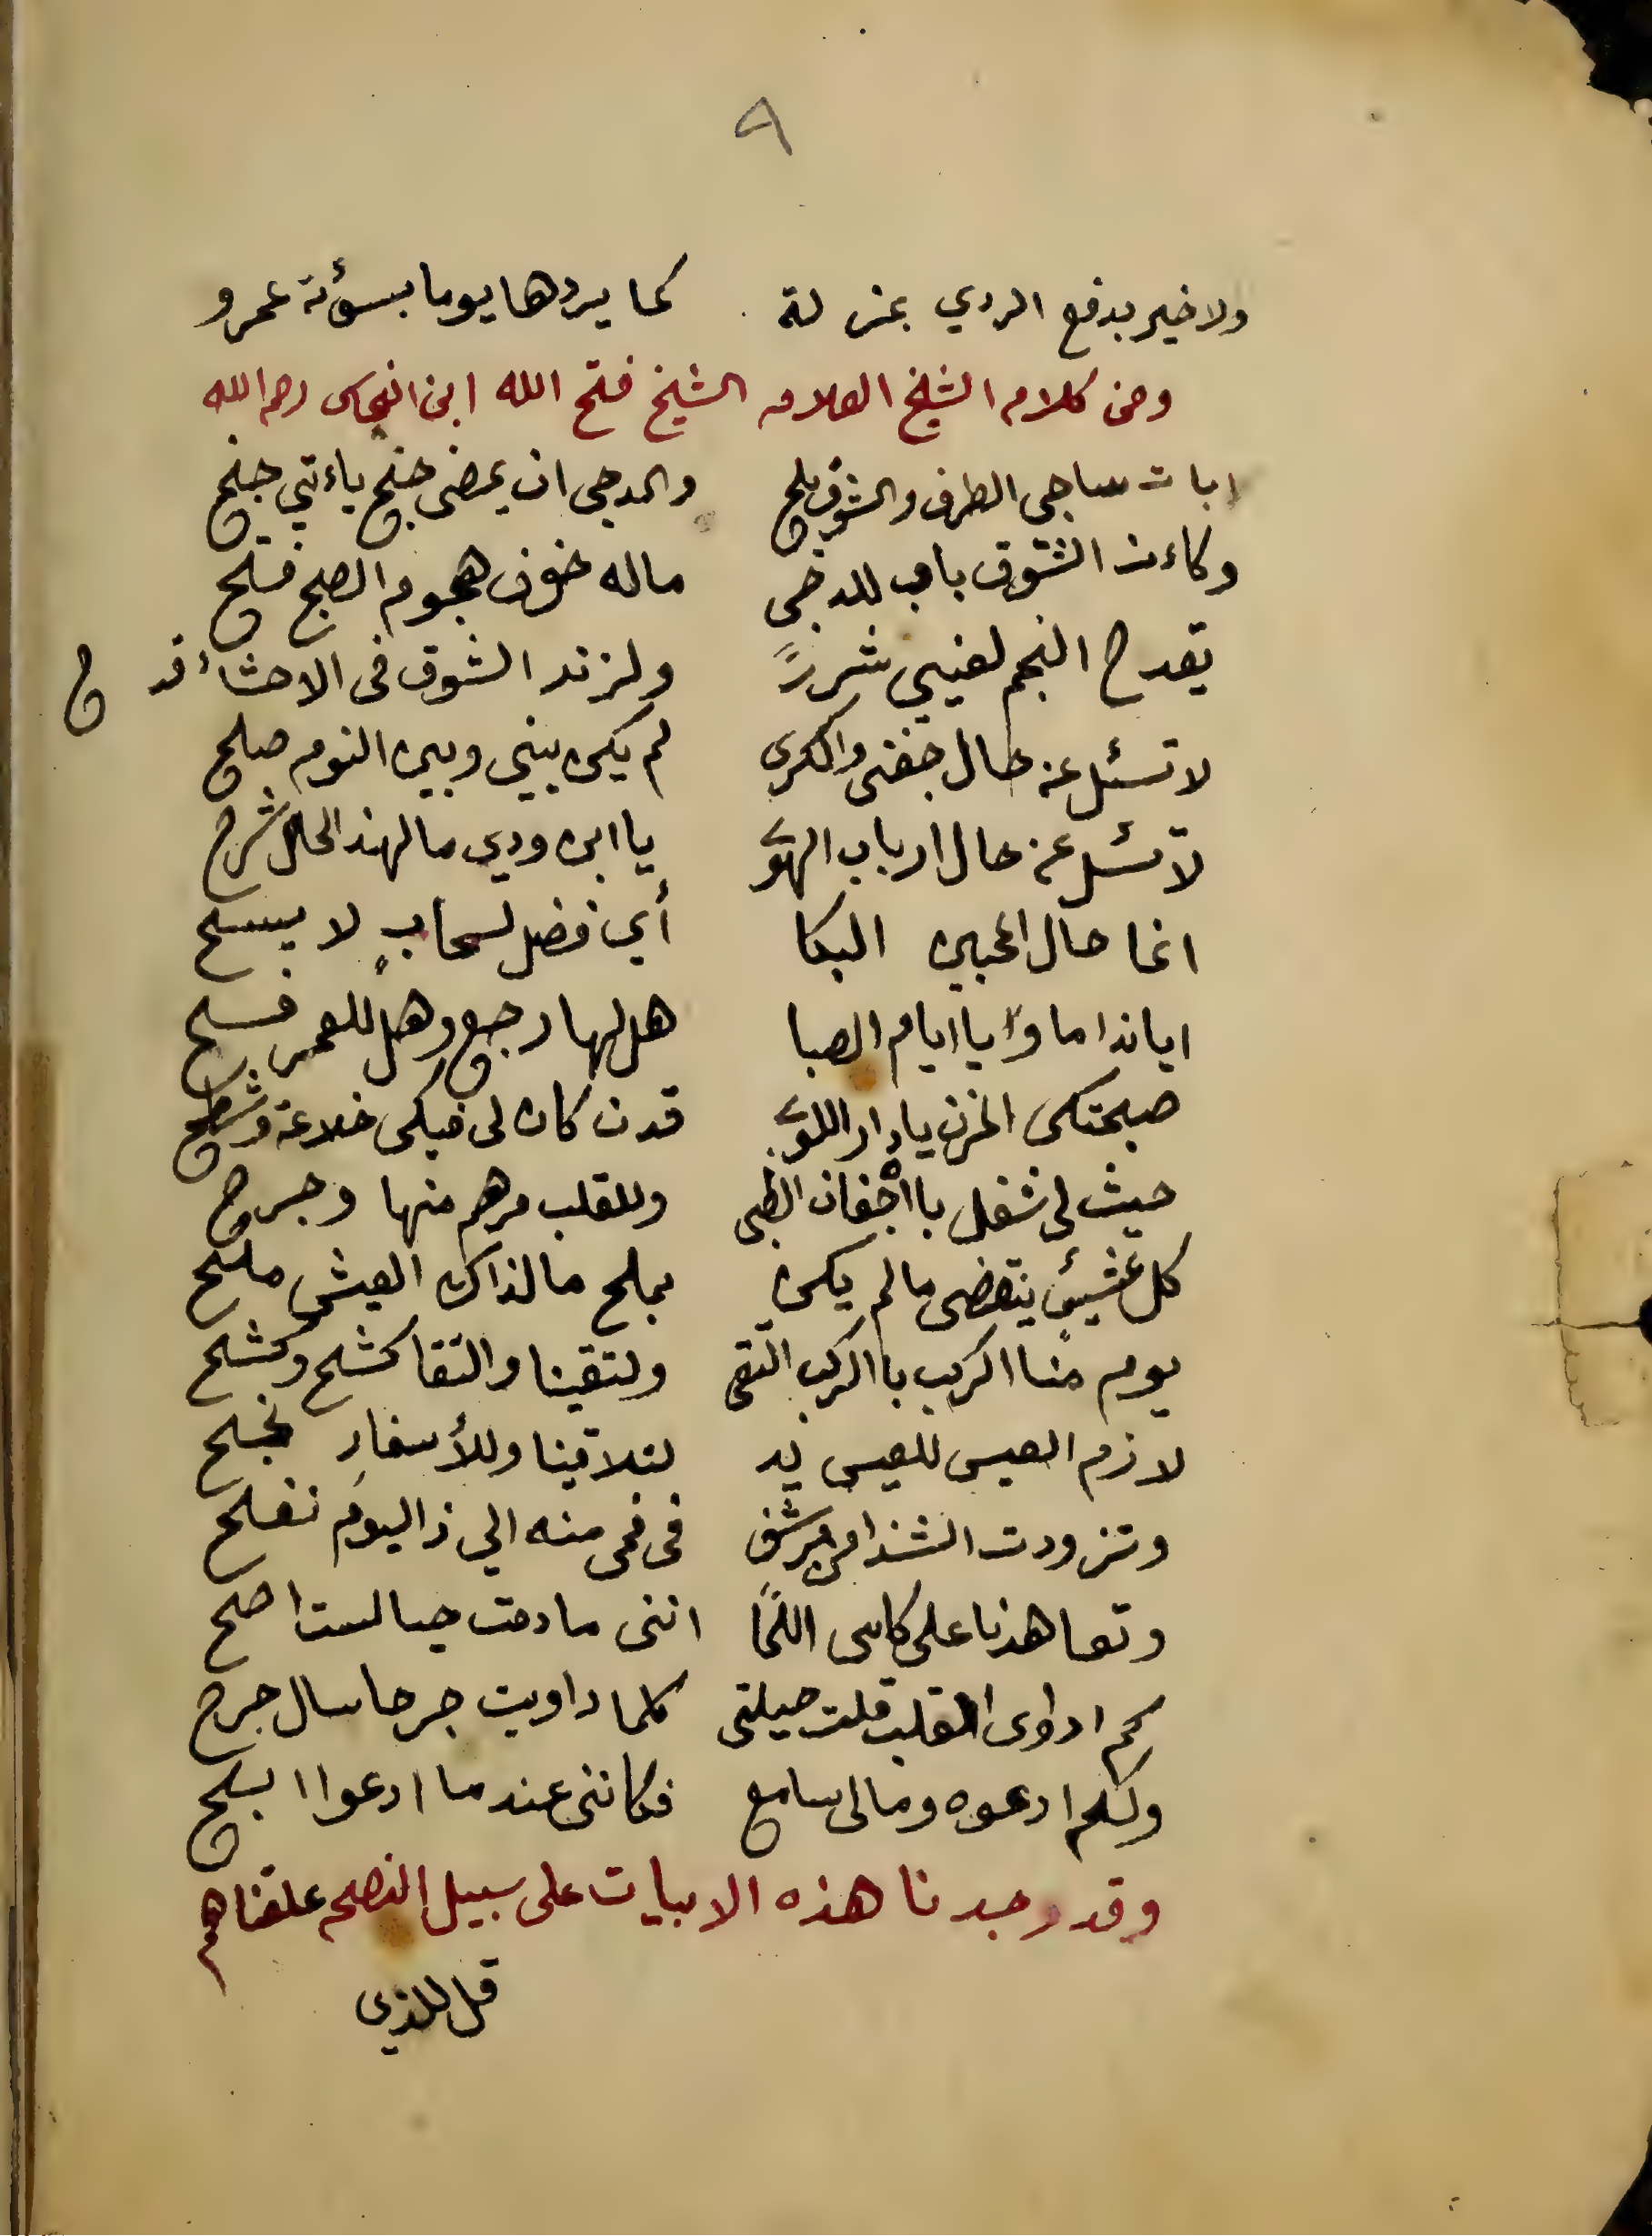 ٩
ولا خير بدفع الردي بمنزلة كما يردها يوما بسؤته عمرو
ومن كلام الشيخ العلامه الشيخ فتح الله ابن النحاس رحم الله
ابات ساجى الطرف والشوق يلح والدجى ان يمضى جنح ياءتي جنح
وكاءن الشوق باب للدجى ماله خوف هجوم الصبح فتح
يقدح النجم لعيني شررً ولزند الشوق فى الاحشاء قدح
لا تسئل عن حال جفنى والكرى لم يكن بيني وبين النوم صلح
لا تسئل عن حال ارباب الهوى يا ابن ودي ما لهذ الحال شرح
انما حال المحبين البكا أي فضل لسحابٍ لا يسح
ايا نداما وايا ايام الصبا هل لها رجع وهل للعمر فسح
صبحتكى المزن يا دار اللوى قدن كان لى فيكى خلاعة وشطح
حيث لى شغل باأجفان الظبى وللقلب مرهم منها وجرح
كل عشيئٍ ينقضى مالم يكن بملح ما لذاك العيش ملح
يوم منا الركب باالركب التقى ولتقينا والتقا كشح وكشح
لازم العيس للعيس يد لتلاقينا وللأسفارِ نجح
وتزودت الشذا من مرشف فى فمى منه الي ذا اليوم نفح
وتعاهدنا على كاس اللمًا اننى ما دمت حيا لست اصح
كم اداوى القلب قلت حيلتى كلما داويت جرحا سال جرح
ولكم ادعوه ومالى سامع فكاننى عندما ادعوا ابح
وقد وجدنا هذه الابيات على سبيل النصح علقناهم
قل للذي